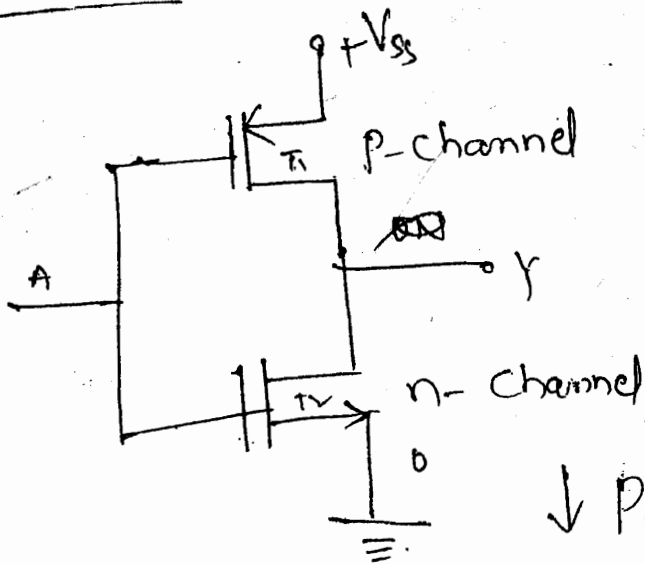 +Vss
T1
p-channel
A
Y
n- channel
T2
0
↓ P